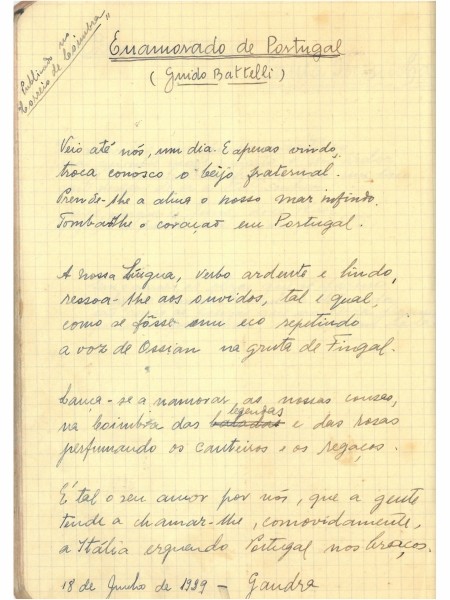 Publicado no
"Correio de Coimbra"
Enamorado de Portugal
(Guido Battelli)
Veio até nós, um dia. E apenas vindo,
troca conosco o beijo fraternal.
Prende-lhe a alma o nosso mar infindo.
Tomba-lhe o coração em Portugal.
A nossa Língua, verbo ardente e lindo,
ressoa-lhe aos ouvidos, tal e qual,
como se fôsse um eco repetindo
a voz de Ossian na gruta de Fingal.
Lança-se a namorar as nossas cousas,
legendas
na Coimbra das baladas e das rosas
perfumando os canteiros e os regaços.
É tal o seu amor por nós, que a gente
tende a chamar-lhe, comovidamente,
a Itália erguendo Portugal nos braços.
18 de Junho de 1939 - Gandra